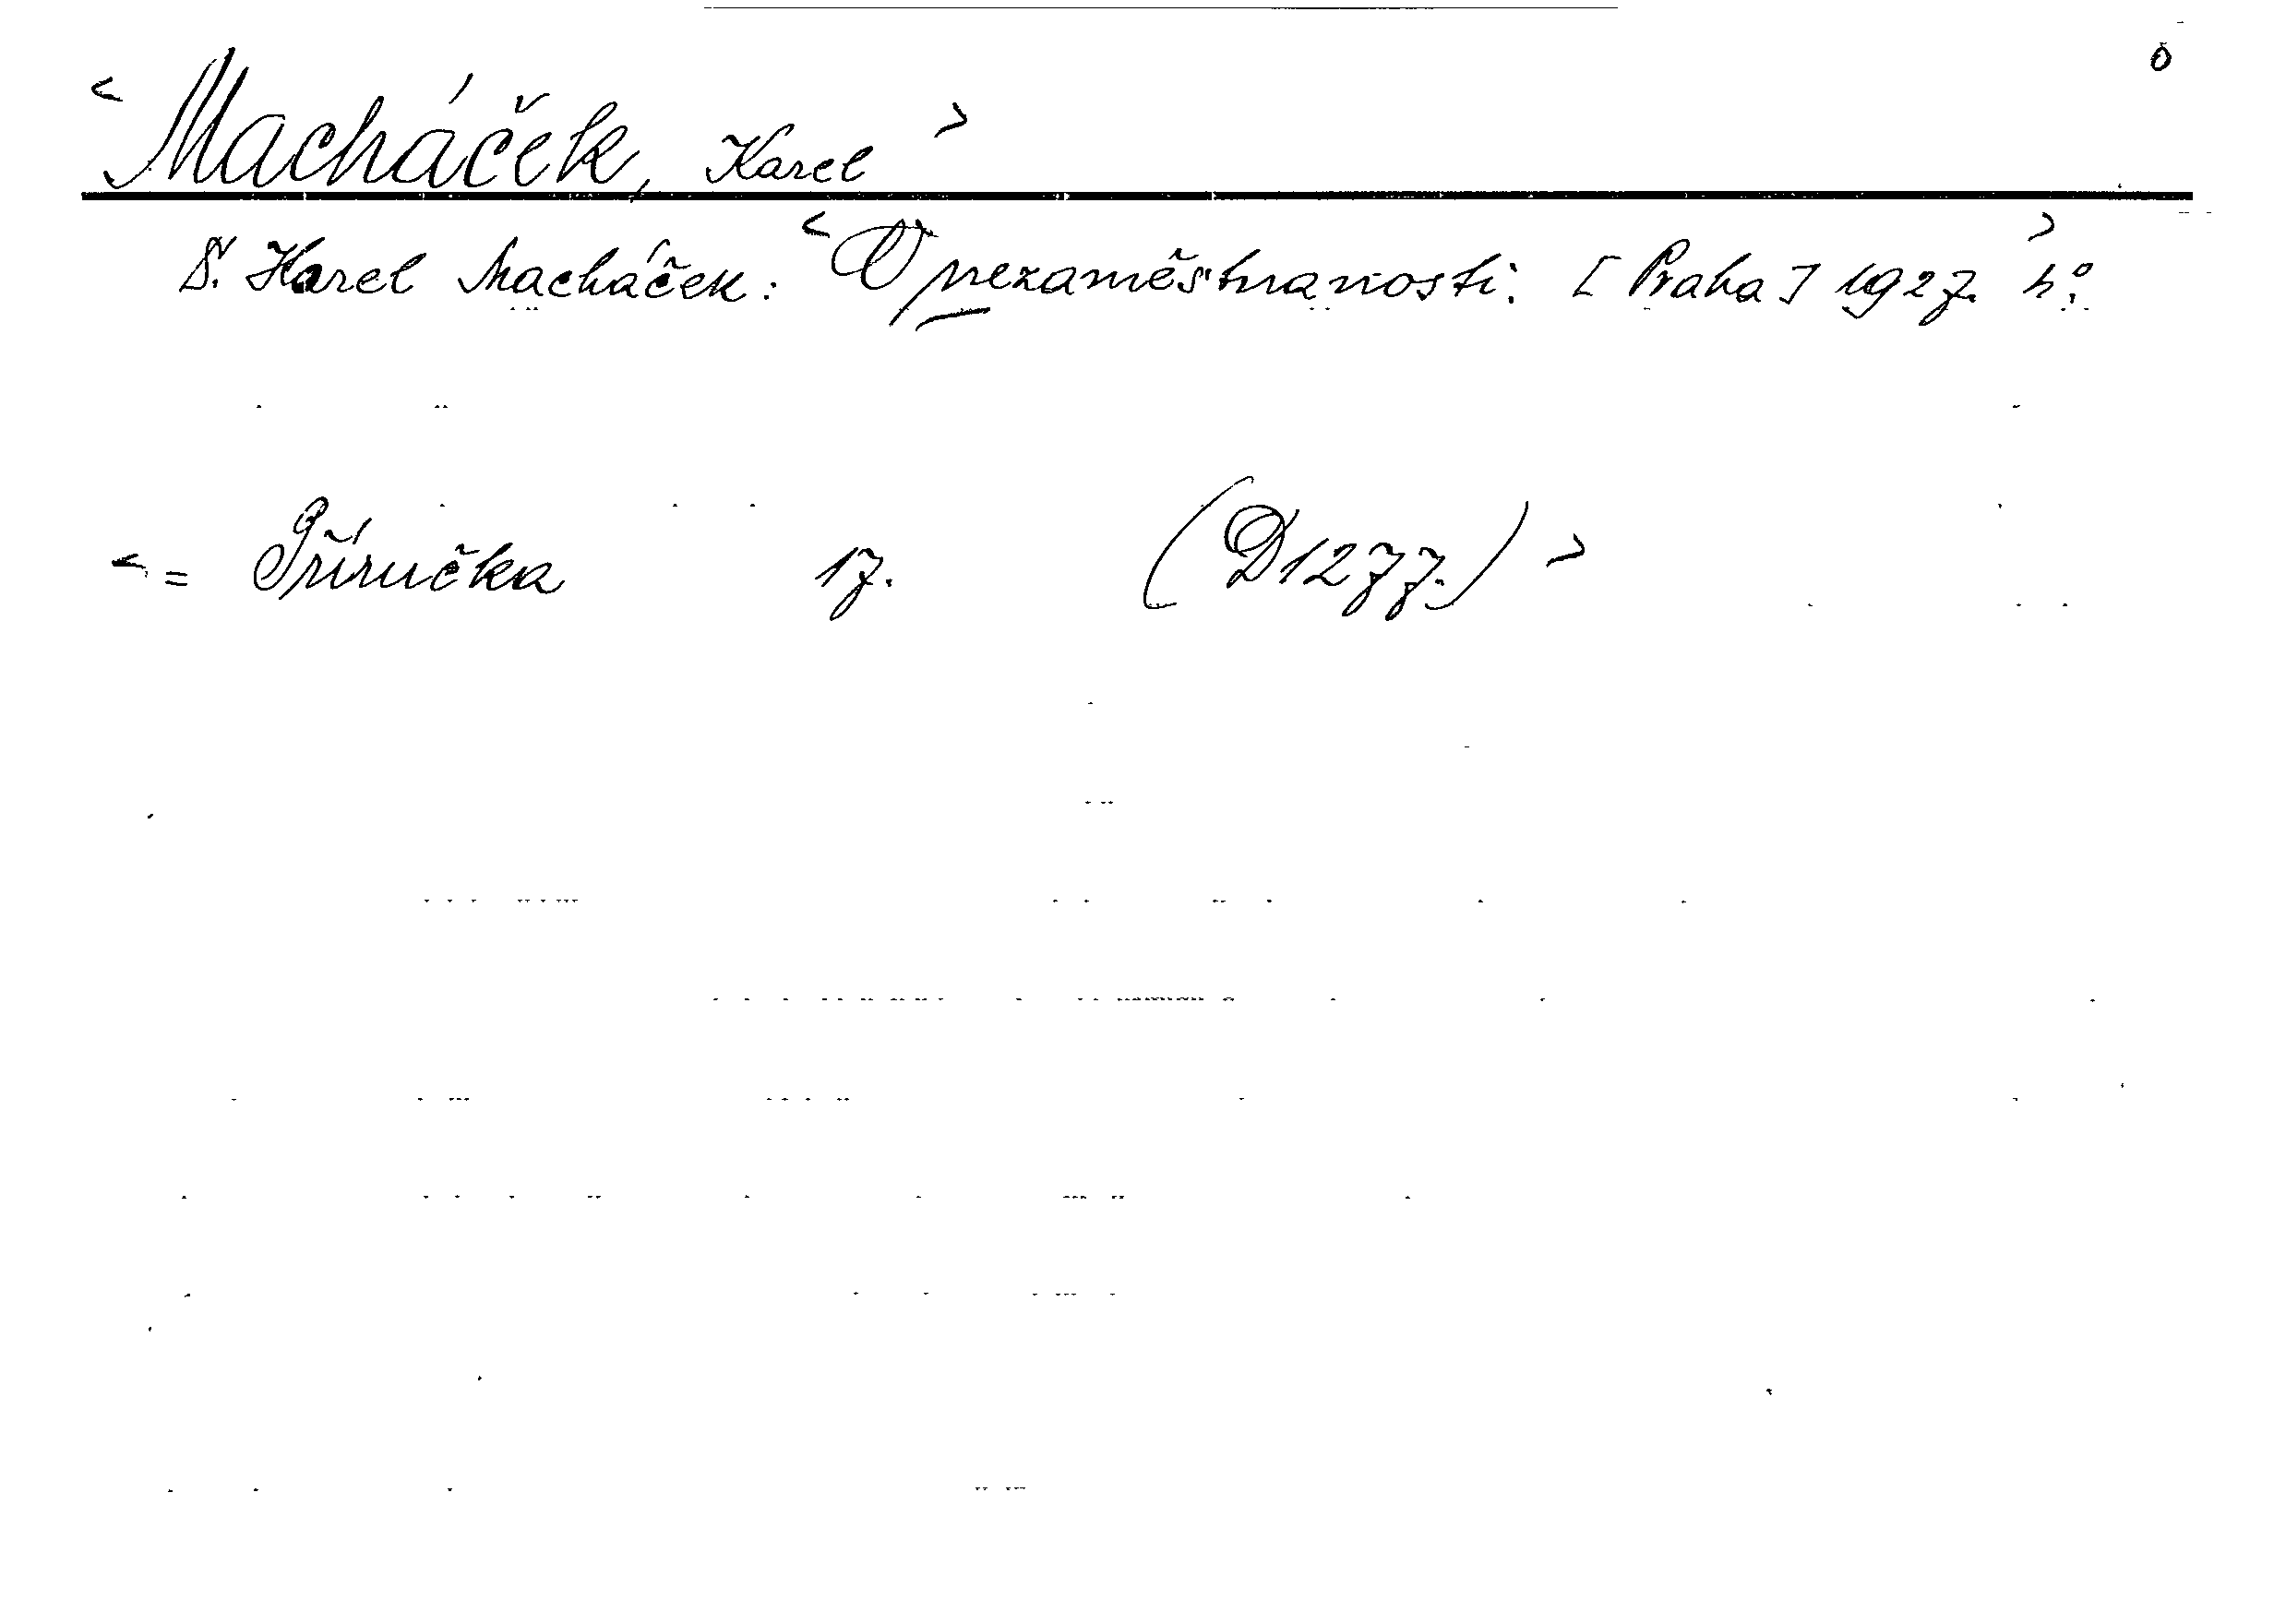 ŏ
< Macháček, Karel >
D. Karel Macháček: < O nezaměstnanosti. [Praha] 1927. 4°. >
< = Příručka 17. (D1277.) >